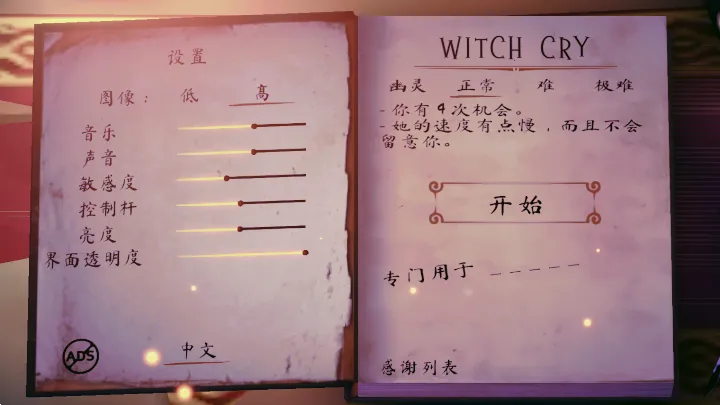 设置
图像： 低 高
音乐
声音
敏感度
控制杆
亮度
界面透明度
ADS
中文
WITCH CRY
幽灵 正常 难 极难
- 你有4次机会。
- 她的速度有点慢，而且不会
留意你。
开始
专门用于 _ _ _ _ _ _
感谢列表